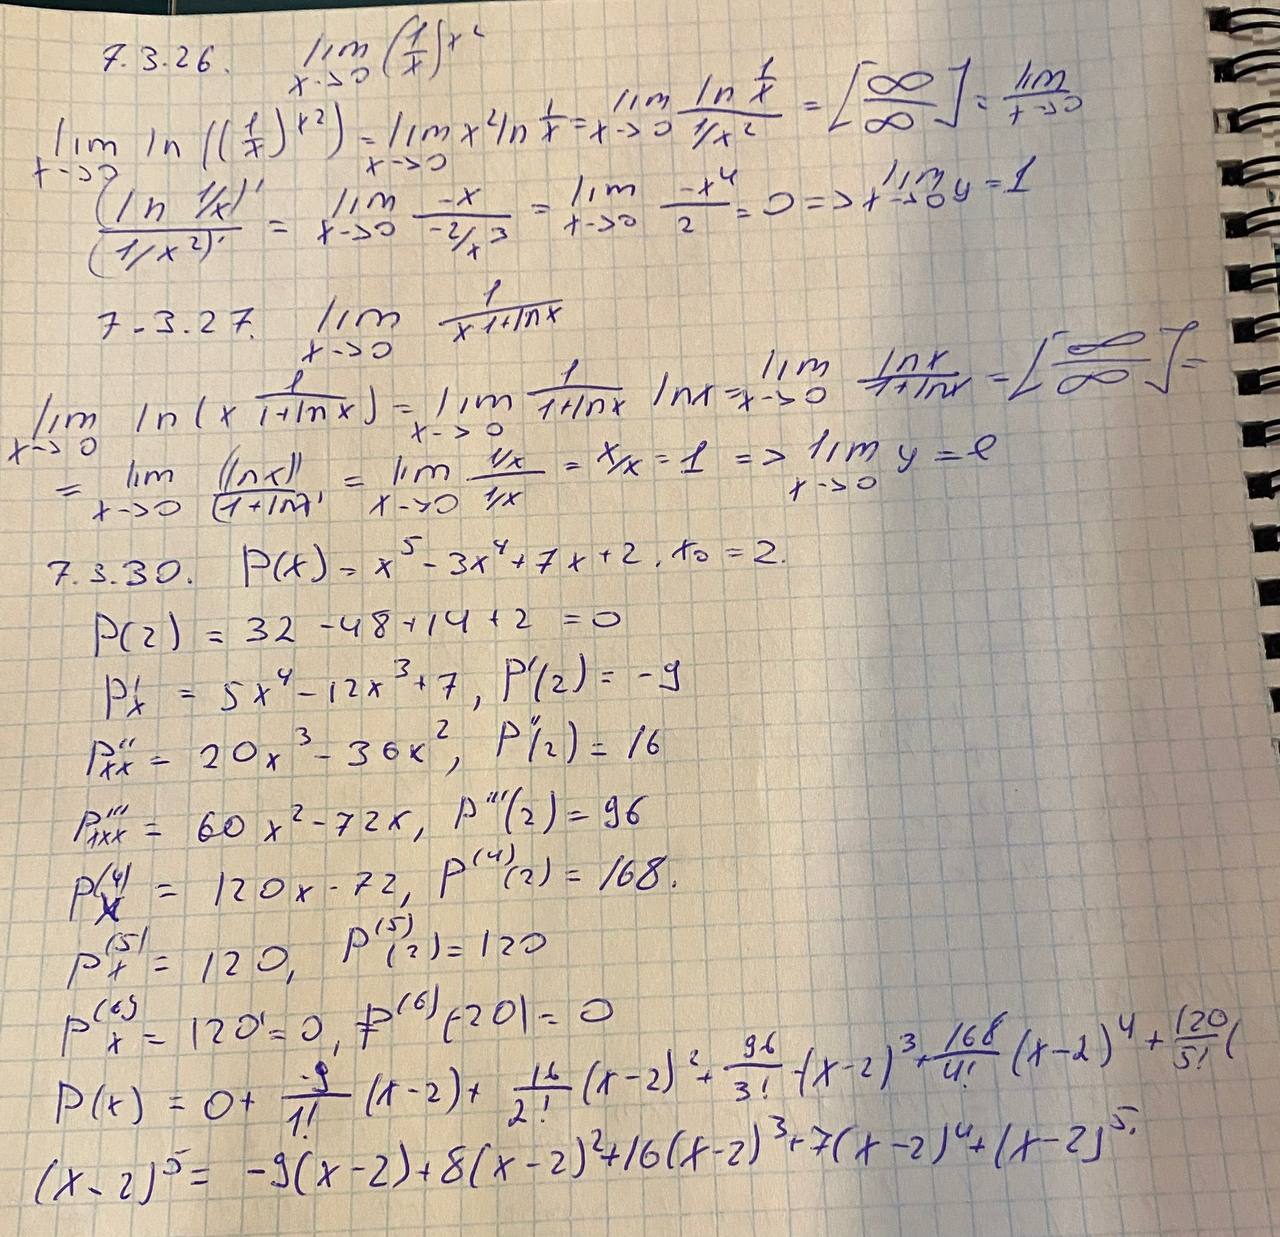 7.3.26. lim x->0 (1/x)^x²
lim x->0 ln((1/x)^x²) = lim x->0 x² ln 1/x = lim x->0 (ln 1/x)/(1/x²) = [∞/∞] = lim x->0
(ln 1/x)'/(1/x²)' = lim x->0 (-x)/(-2/x³) = lim x->0 (-x⁴)/2 = 0 => lim x->0 y = 1
7.3.27. lim x->0 x^(1/(1+lnx))
lim x->0 ln(x^(1/(1+lnx))) = lim x->0 1/(1+lnx) lnx = lim x->0 lnx/(1+lnx) = [∞/∞] =
= lim x->0 (lnx)'/(1+ln)' = lim x->0 (1/x)/(1/x) = x/x = 1 => lim x->0 y = e
7.3.30. P(x) = x⁵ - 3x⁴ + 7x + 2, x₀ = 2.
P(2) = 32 - 48 + 14 + 2 = 0
P'x = 5x⁴ - 12x³ + 7, P'(2) = -9
P''xx = 20x³ - 36x², P''(2) = 16
P'''xxx = 60x² - 72x, P'''(2) = 96
P⁽⁴⁾x = 120x - 72, P⁽⁴⁾(2) = 168.
P⁽⁵⁾x = 120, P⁽⁵⁾(2) = 120
P⁽⁶⁾x = 120' = 0, P⁽⁶⁾(20) = 0
P(x) = 0 + -9/1! (x-2) + 16/2! (x-2)² + 96/3! · (x-2)³ + 168/4! (x-2)⁴ + 120/5! (
(x-2)⁵ = -9(x-2) + 8(x-2)² + 16(x-2)³ + 7(x-2)⁴ + (x-2)⁵.